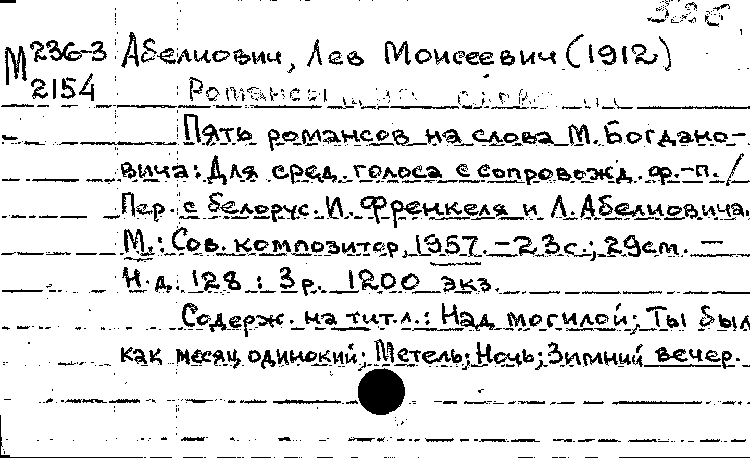 326
М 236-3 Абелиович, Лев Моисеевич (1912)
2154 Романсы на слова
Пять романсов на слова М. Богдано-
вича: Для сред. голоса с сопровожд. ф.-п. /
Пер. с белорус. И. Френкеля и Л. Абелиовича.
М.: Сов. композитор, 1957. – 23 с.; 29 см. –
Н.д. 128 : 3 р. 1200 экз.
Содерж. на тит. л.: Над могилой; Ты был
как месяц одинокий; Метель; Ночь; Зимний вечер.